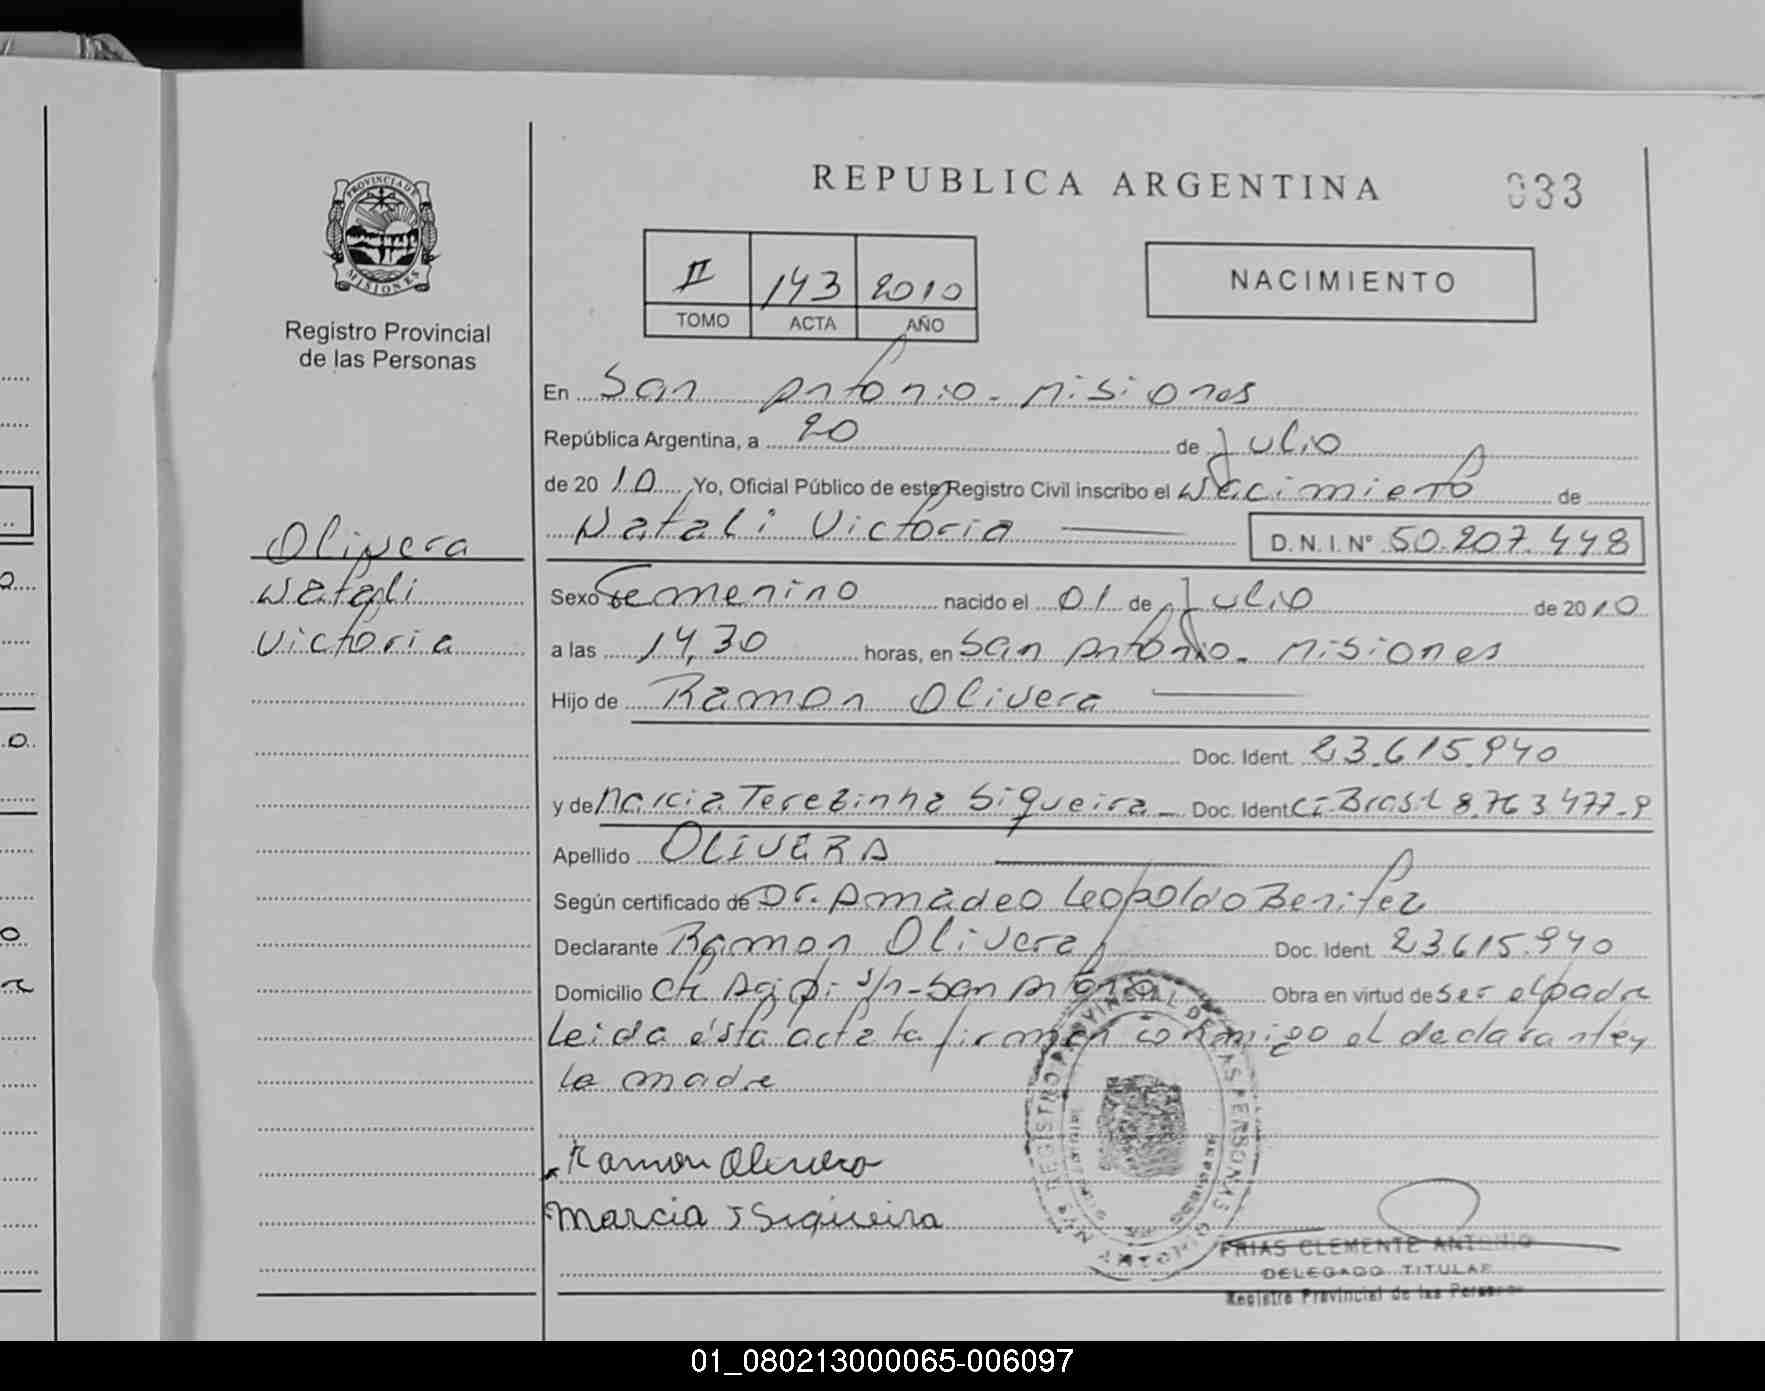 REPUBLICA ARGENTINA
033
PROVINCIA DE
MISIONES
Registro Provincial
de las Personas
II 143 2010
TOMO ACTA AÑO
NACIMIENTO
En San Antonio - Misiones
República Argentina, a 20 de Julio
de 2010 Yo, Oficial Público de este Registro Civil inscribo el Nacimiento de
Natali Victoria D.N.I. Nº 50.207.448
Olivera
Natali
Victoria
Sexo Femenino nacido el 01 de Julio de 2010
a las 14,30 horas, en San Antonio - Misiones
Hijo de Ramon Olivera
Doc. Ident. 23.615.940
y de Marcia Terezinha Siqueira - Doc. Ident. CI Brasil 8.763.477-9
Apellido OLIVERA
Según certificado de Dr. Amadeo Leopoldo Benitez
Declarante Ramon Olivera Doc. Ident. 23.615.940
Domicilio s/n - San Antonio Obra en virtud de ser el padre
Leida ésta acta la firman conmigo el declarante y
la madre
Ramon Olivera
Marcia T Siqueira
REGISTRO PROVINCIAL DE LAS PERSONAS
FRIAS CLEMENTE ANTONIO
DELEGADO TITULAR
Registro Provincial de las Personas
01_080213000065-006097